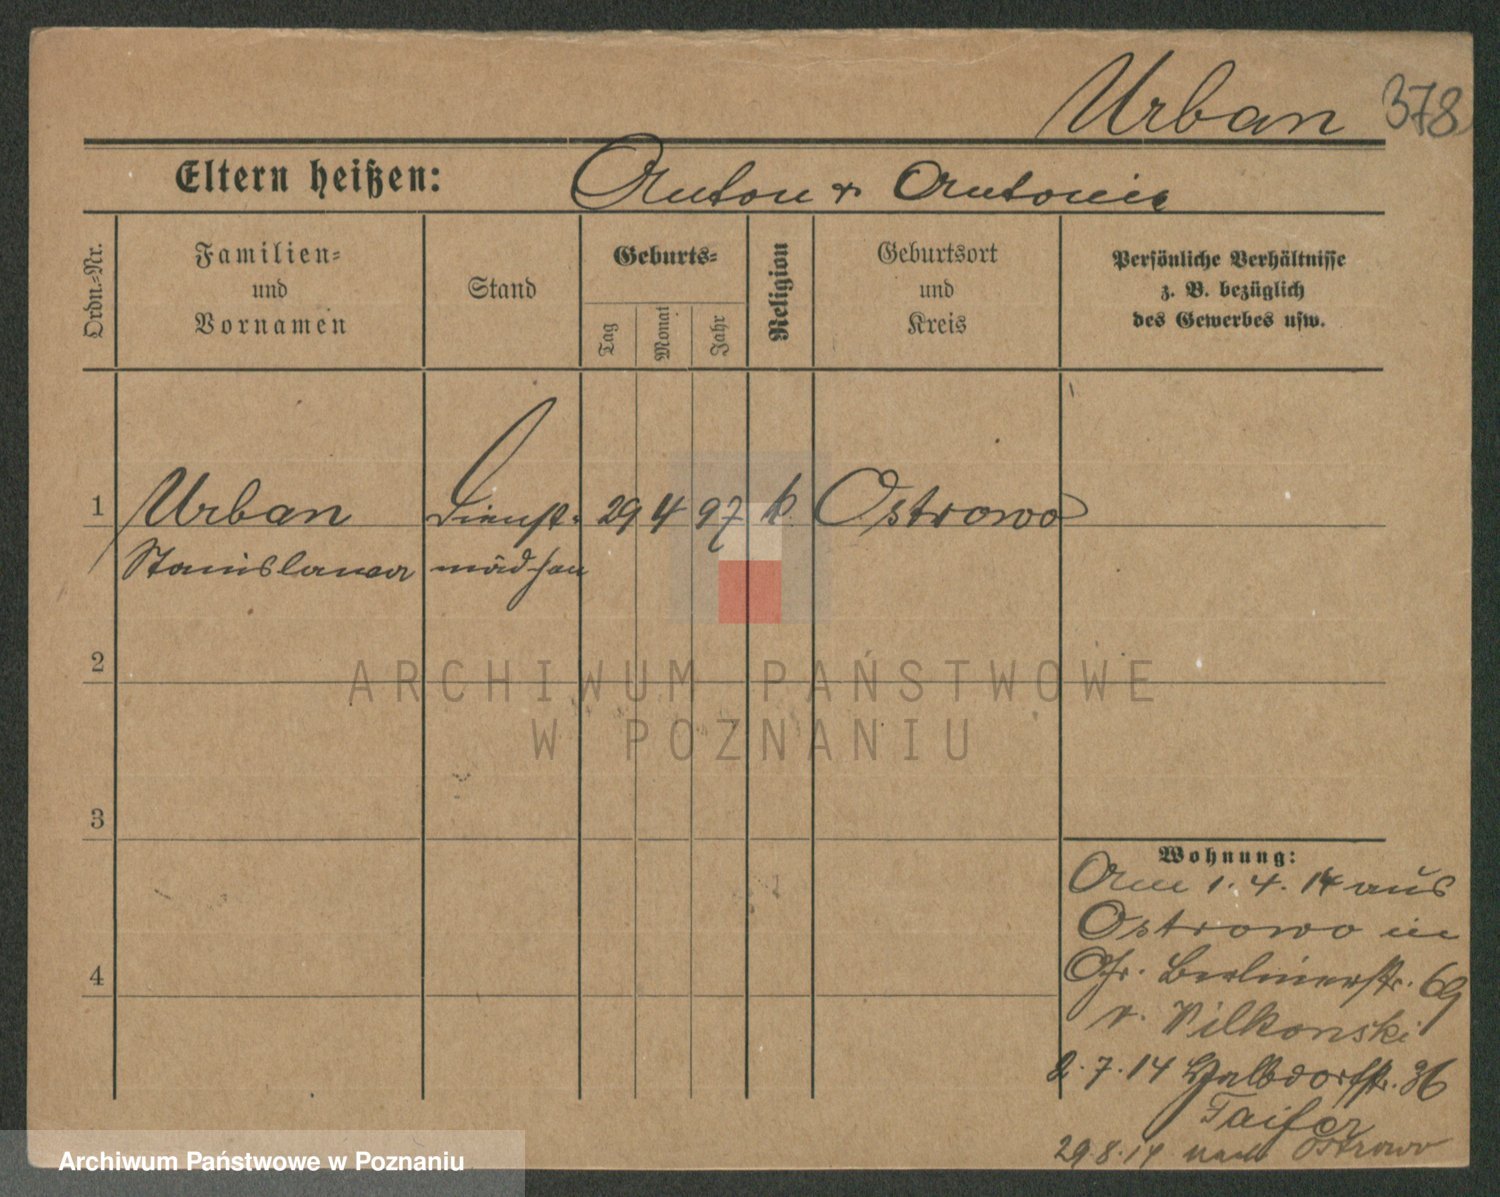 Urban 378
Eltern heißen: Anton & Antonie
Ordn.-Nr.
Familien-
und
Vornamen
Stand
Geburts-
Tag
Monat
Jahr
Religion
Geburtsort
und
Kreis
Persönliche Verhältnisse
z. B. bezüglich
des Gewerbes usw.
1 Urban Dienst- 29 4 97 k. Ostrowo
Stanislawa mädchen
2
3
4
Wohnung:
Am 1.4.14 aus
Ostrowo in
Gr. Berlinerstr. 69
v. Wilkonski
2.7.14 Halbdorfstr. 36
29.8.14 nach Ostrowo
ARCHIWUM PAŃSTWOWE
W POZNANIU
Archiwum Państwowe w Poznaniu